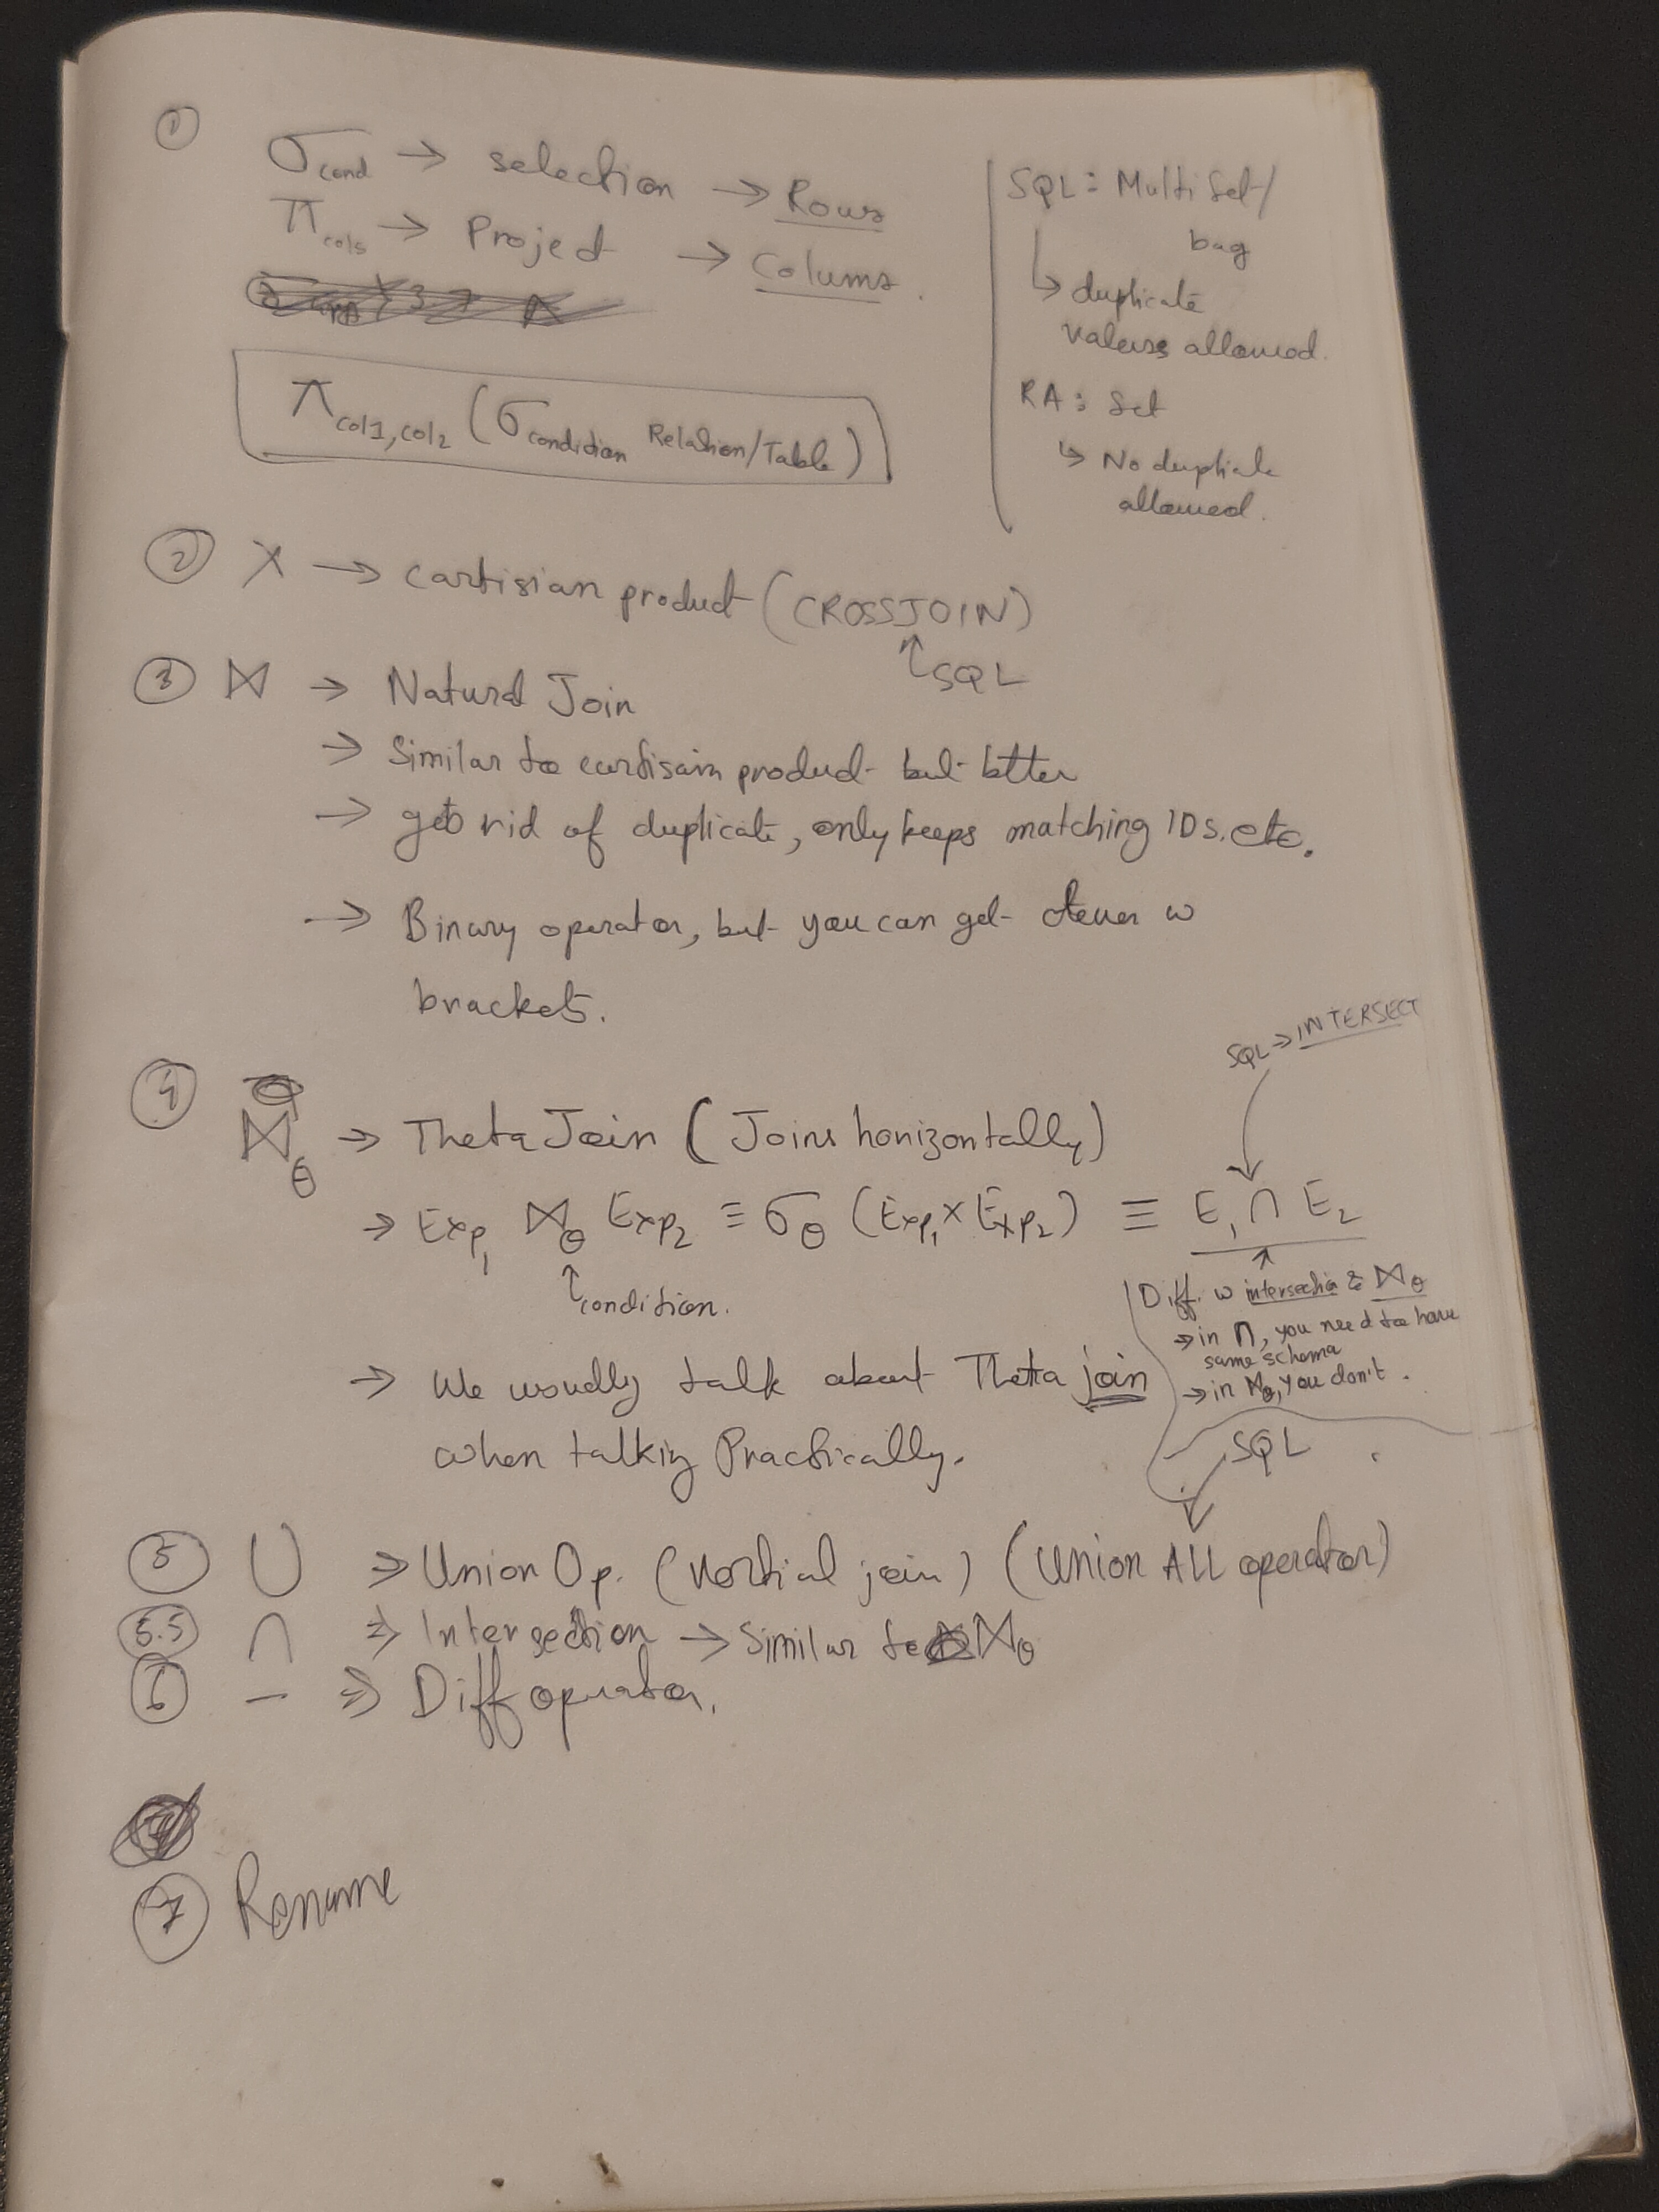 ①
σcond → selection → Rows
πcols → Project → Colums.
πcol1,col2 (σcondition Relation/Table)
SQL: MultiSet/
bag
↳ duplicate
values allowed.
RA: Set
↳ No duplicate
allowed.
② X → cartisian product (CROSSJOIN)
↑ SQL
③ ⋈ → Natural Join
→ Similar to cartisain product but btter
→ gets rid of duplicate, only keeps matching IDs. etc.
→ Binary operator, but you can get clever w
brackets.
SQL → INTERSECT
④ ⋈θ → Theta Join (Joins horizontally)
→ Exp1 ⋈θ Exp2 ≡ σθ (Exp1 × Exp2) ≡ E1 ∩ E2
↑ condition.
Diff. w intersection & ⋈θ
→ in ∩, you need to have
same schema
→ in ⋈θ, you don't.
→ We usually talk about Theta join
when talking Practically.
SQL
⑤ ∪ ⇒ Union Op. (Vertial join) (Union ALL operator)
5.5 ∩ ⇒ Intersection → Similar to ⋈θ
⑥ − ⇒ Diff operator.
⑦ Rename